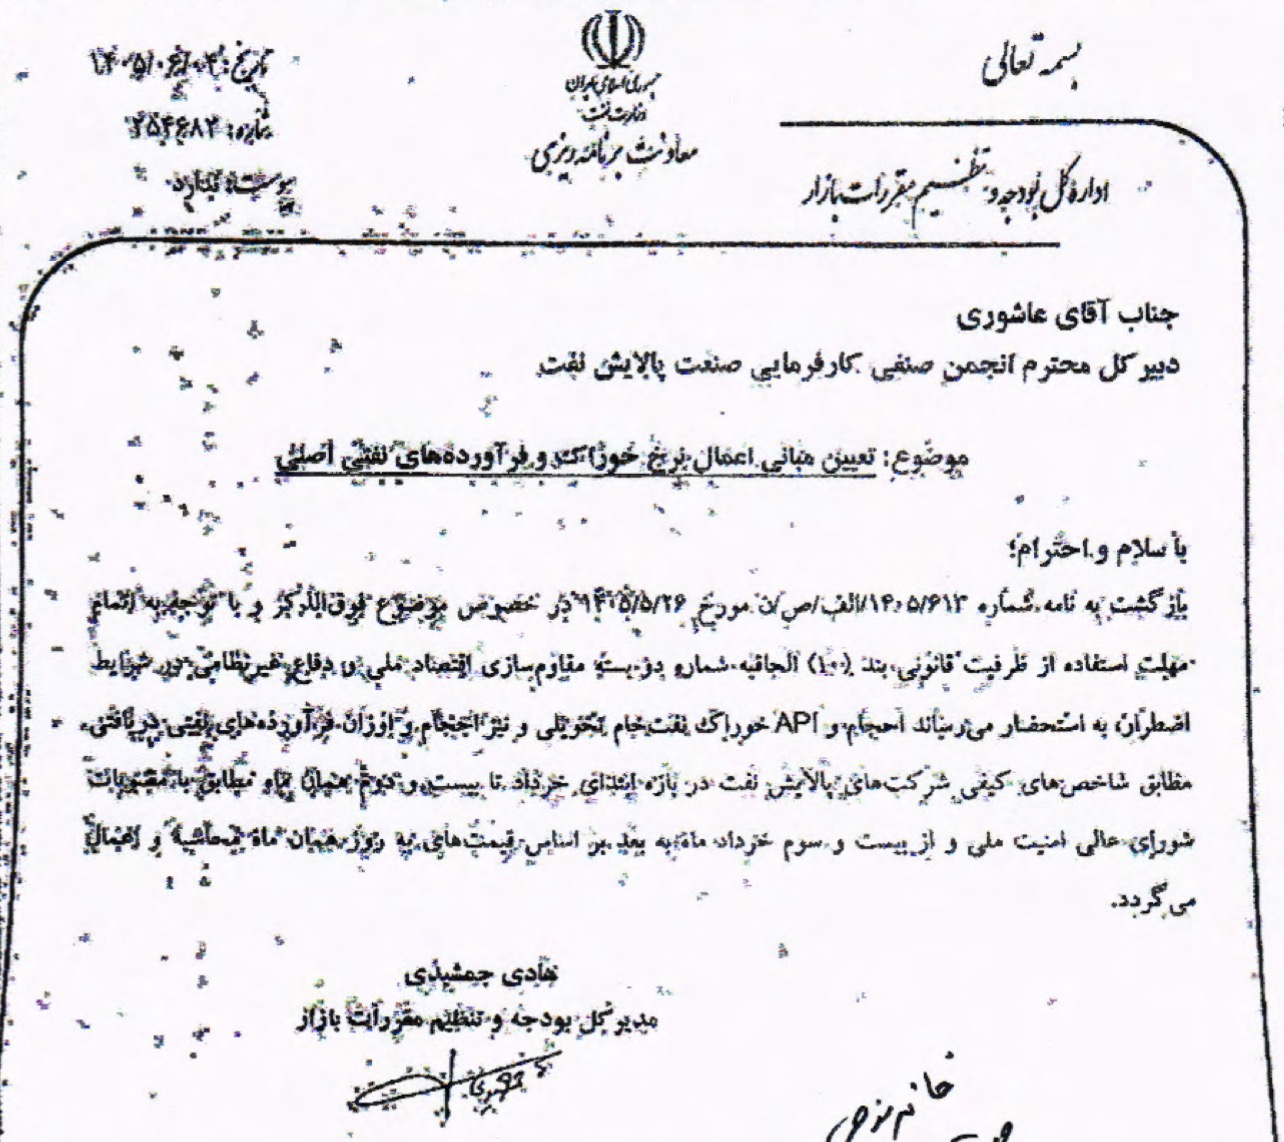 بسمه تعالی
جمهوری اسلامی ایران
وزارت نفت
معاونت برنامه‌ریزی
تاریخ: ۱۴۰۵/۰۶/۰۴
شماره: ۲۵۴۶۸۲
پیوست: ندارد
اداره کل بودجه و تنظیم مقررات بازار
جناب آقای عاشوری
دبیر کل محترم انجمن صنفی کارفرمایی صنعت پالایش نفت
موضوع: تعیین مبانی اعمال نرخ خوراک و فرآورده‌های نفتی اصلی
با سلام و احترام؛
بازگشت به نامه شماره ۱۴۰۵/۶۱۳/الف/ص/ن مورخ ۱۴۰۵/۵/۲۶ در خصوص موضوع فوق‌الذکر و با توجه به اتمام
مهلت استفاده از ظرفیت قانونی بند (۱۰۰) الحاقیه شماره دو بسته مقاوم‌سازی اقتصاد ملی و دفاع غیرنظامی در شرایط
اضطرار، به استحضار می‌رساند احجام و API خوراک نفت‌خام تحویلی و نیز احجام و اوزان فرآورده‌های نفتی دریافتی
مطابق شاخص‌های کیفی شرکت‌های پالایش نفت در بازه ابتدای خرداد تا بیست و دوم همان ماه مطابق با مصوبات
شورای عالی امنیت ملی و از بیست و سوم خرداد ماه به بعد بر اساس قیمت‌های به روز همان ماه محاسبه و اعمال
می‌گردد.
هادی جمشیدی
مدیر کل بودجه و تنظیم مقررات بازار
خانم